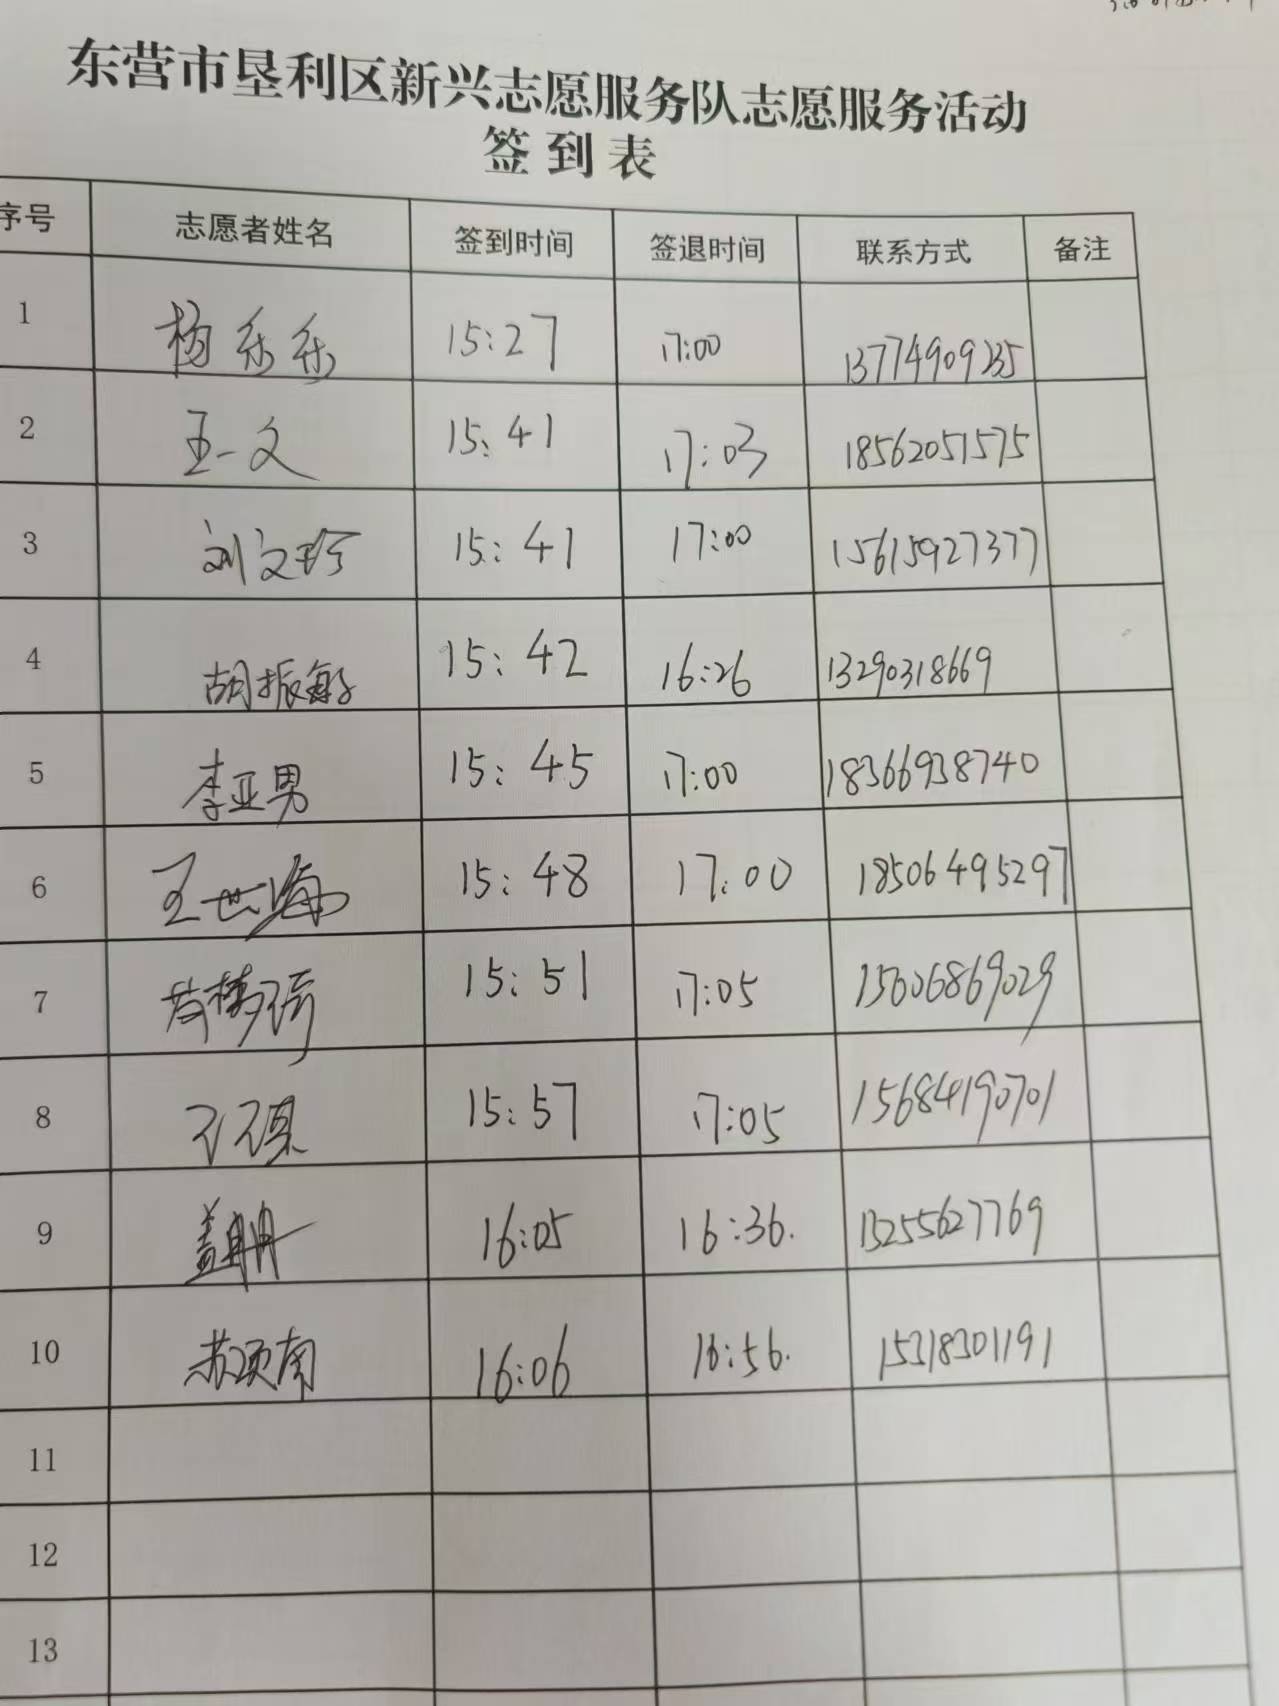 东营市垦利区新兴志愿服务队志愿服务活动
签到表
序号 志愿者姓名 签到时间 签退时间 联系方式 备注
1 杨乐乐 15:27 17:00 13774909235
2 王一文 15:41 17:03 18562051575
3 刘文珍 15:41 17:00 15615927377
4 胡振敏 15:42 16:26 13290318669
5 李亚男 15:45 17:00 18366938740
6 王世海 15:48 17:00 18506495297
7 15:51 17:05 15606869029
8 15:57 17:05 15684190701
9 盖冉冉 16:05 16:36. 13255627769
10 苏项南 16:06 16:56. 15318301191
11
12
13